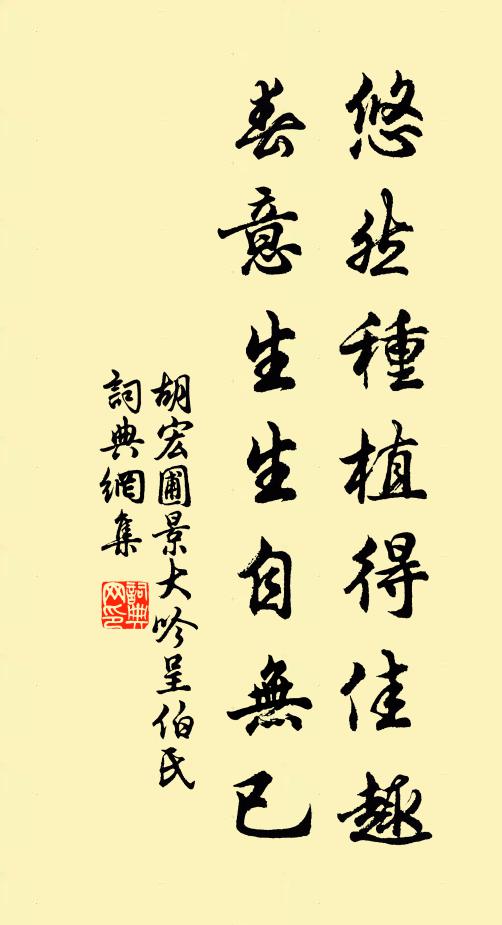 悠然種植得佳趣
春意生生自無已
胡宏圃景大吟呈伯氏
詞典網集
詞典網印